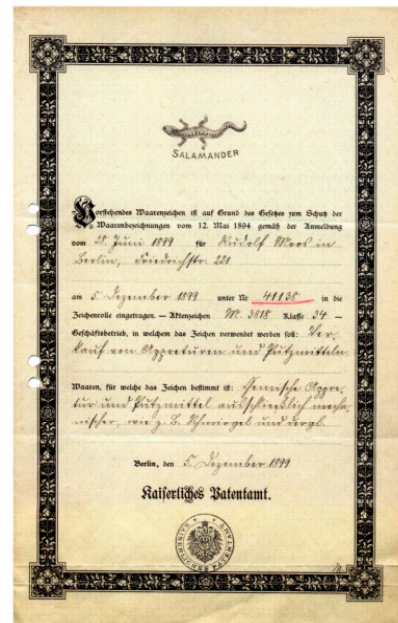 SALAMANDER
Vorstehendes Waarenzeichen ist auf Grund des Gesetzes zum Schutz der
Waarenbezeichnungen vom 12. Mai 1894 gemäß der Anmeldung
vom 28. Juni 1899 für Rudolf Moos in
Berlin, Friedrichstr. 221
am 5. Dezember 1899 unter Nr 40138 in die
Zeichenrolle eingetragen. — Aktenzeichen M. 3818 Klasse 34 —
Geschäftsbetrieb, in welchem das Zeichen verwendet werden soll: Ver,
kauf von Appretüren und Putzmitteln.
Waaren, für welche das Zeichen bestimmt ist: Chemische Appre,
tur und Putzmittel ausschließlich mecha,
nischer, wie z. B. Schmirgel und dergl.
Berlin, den 5. Dezember 1899
Kaiserliches Patentamt.